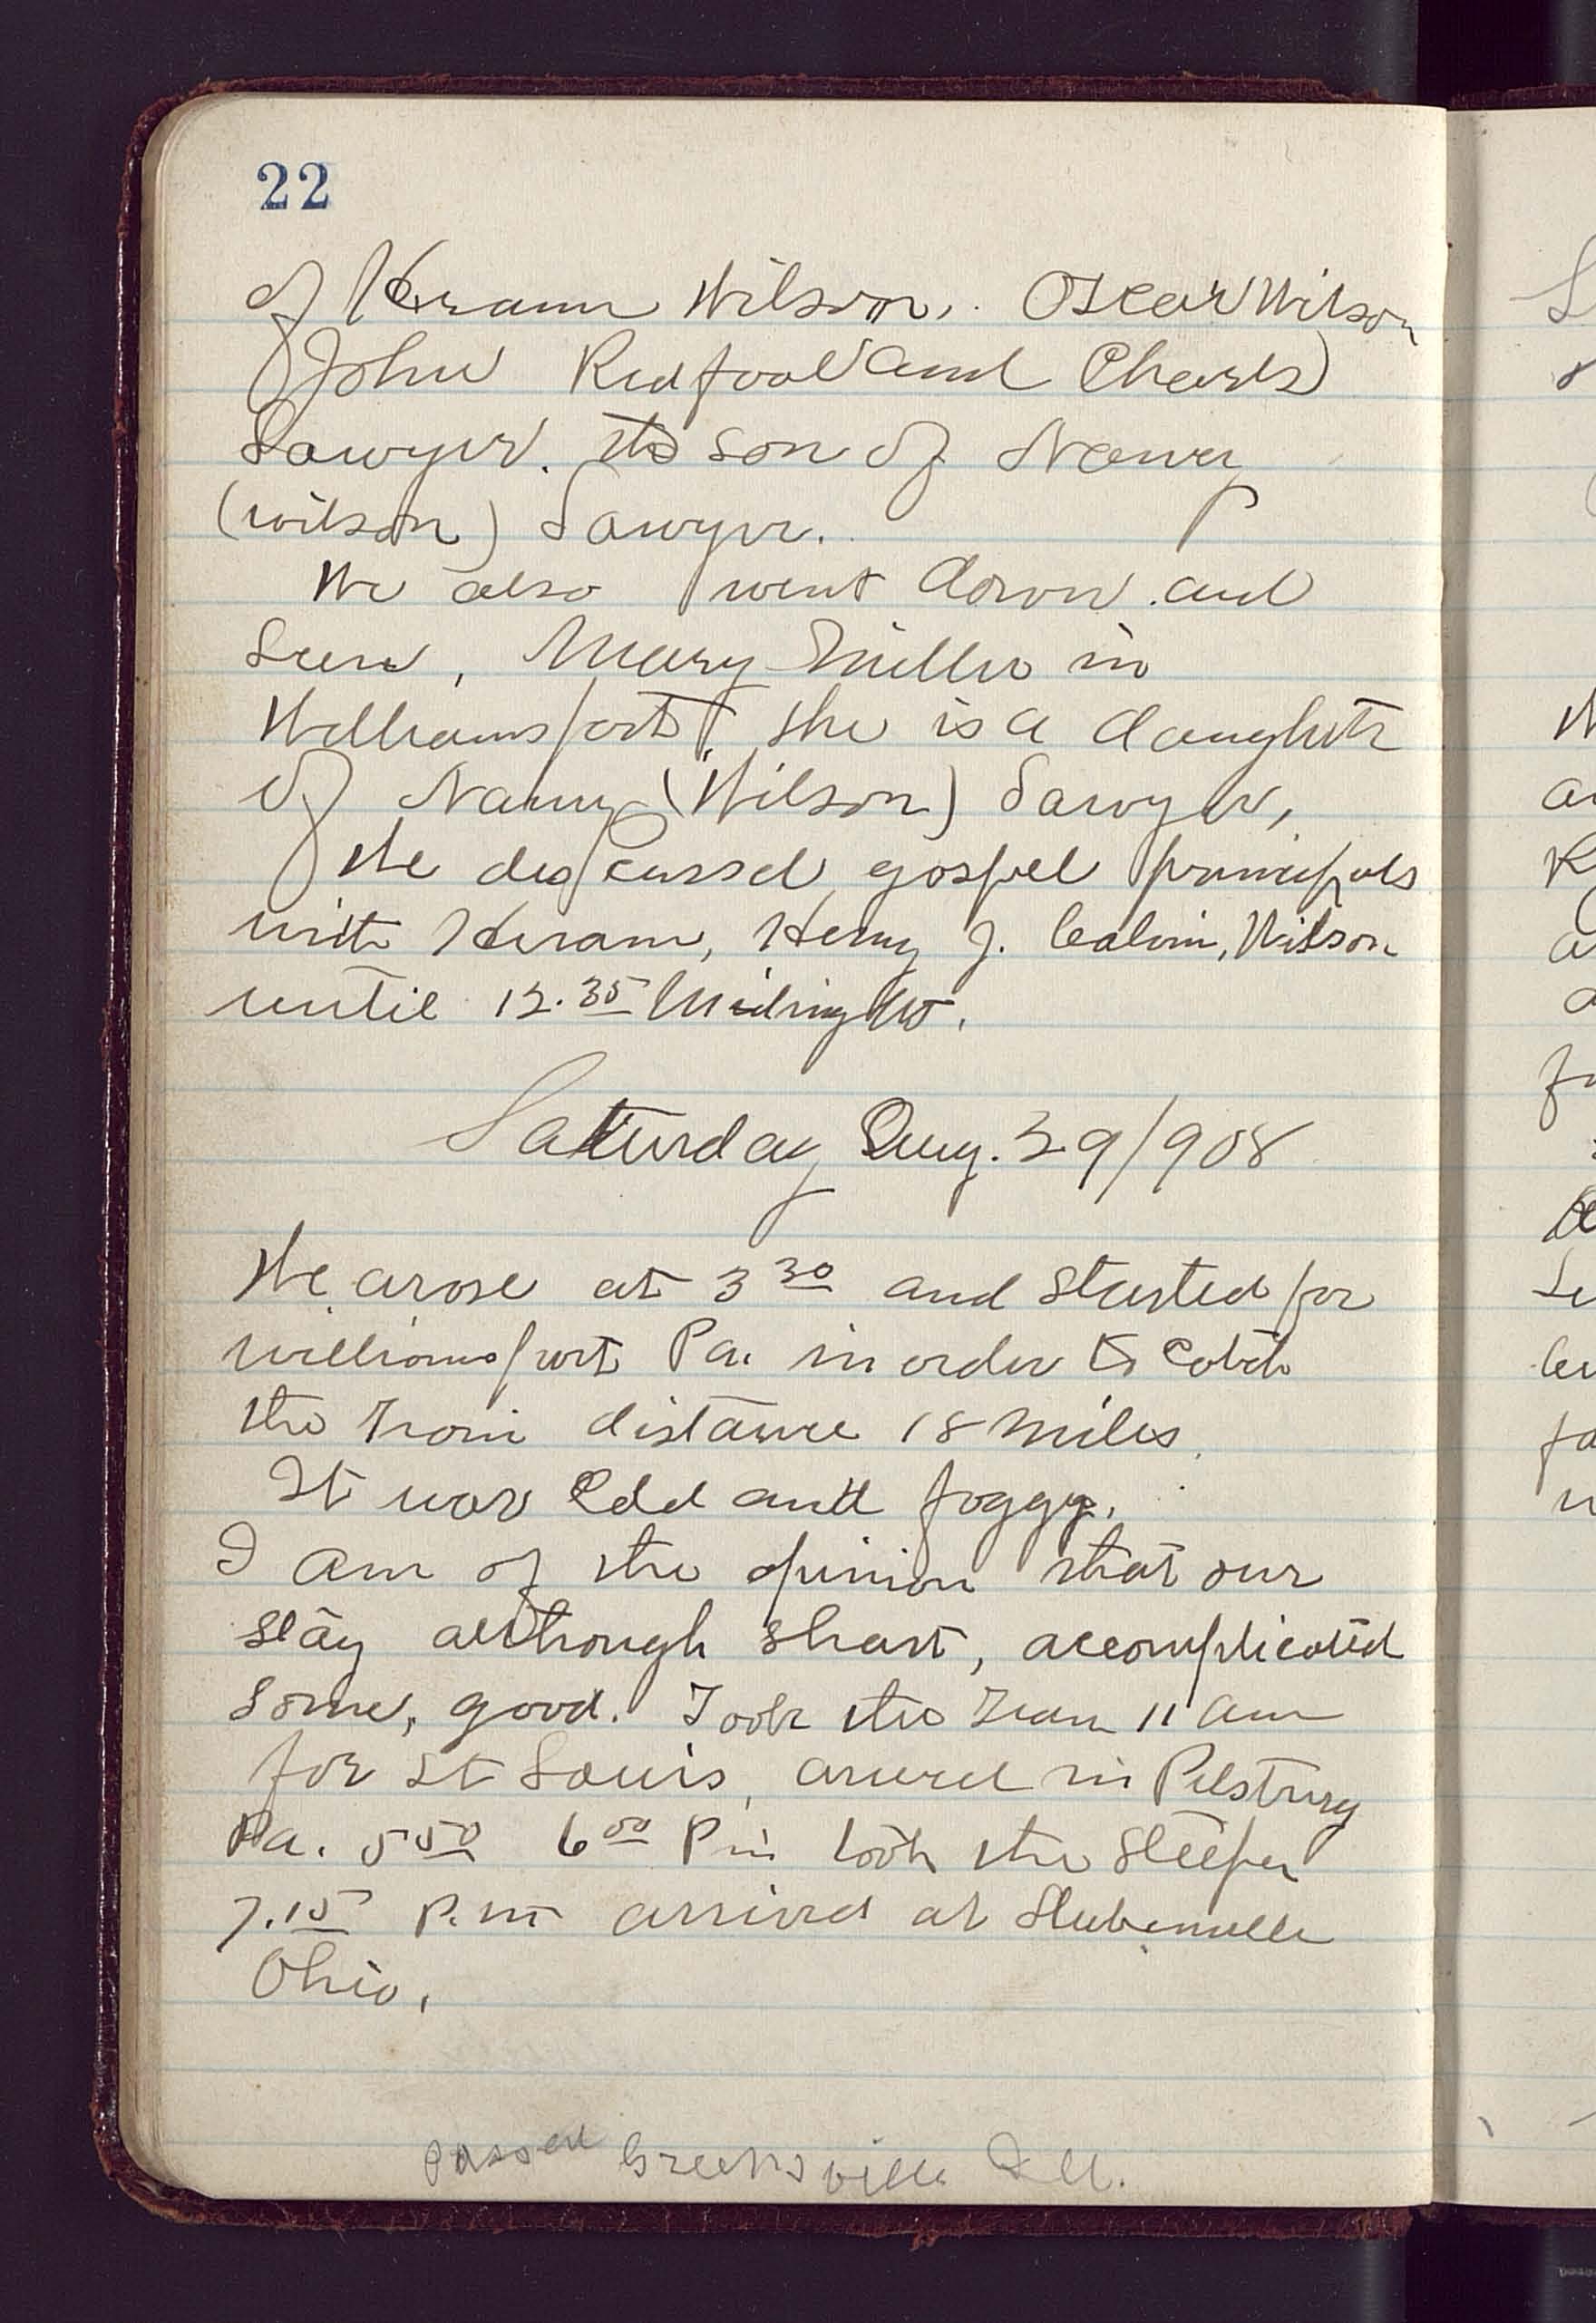 22
of Hiram Wilson. Oscar Wilson
John Redfoot and Charls
Sawyer. the son of Nancy
(wilson) Sawyer.
We also went down and
seen, Mary Miller in
Williamsport, she is a daughter
of Nancy (Wilson) Sawyer,
We discussed gospel principals
with Hiram, Henry J. Calvin, Wilson
until 12.35 Midnight.
Saturday Aug. 29/908
We arose at 3 30 and started for
williamsport Pa. in order to catch
the train distance 18 miles.
It was cold and foggy.
I am of the opinion that our
stay although short, accomplicated
some, good. Took the Train 11 am
for St Louis, arived in Pitsburg
Pa. 5 50 6 00 Pm took the sleeper
7.15 P.m arrived at Stubenville
Ohio.
passed Greensville Ill.